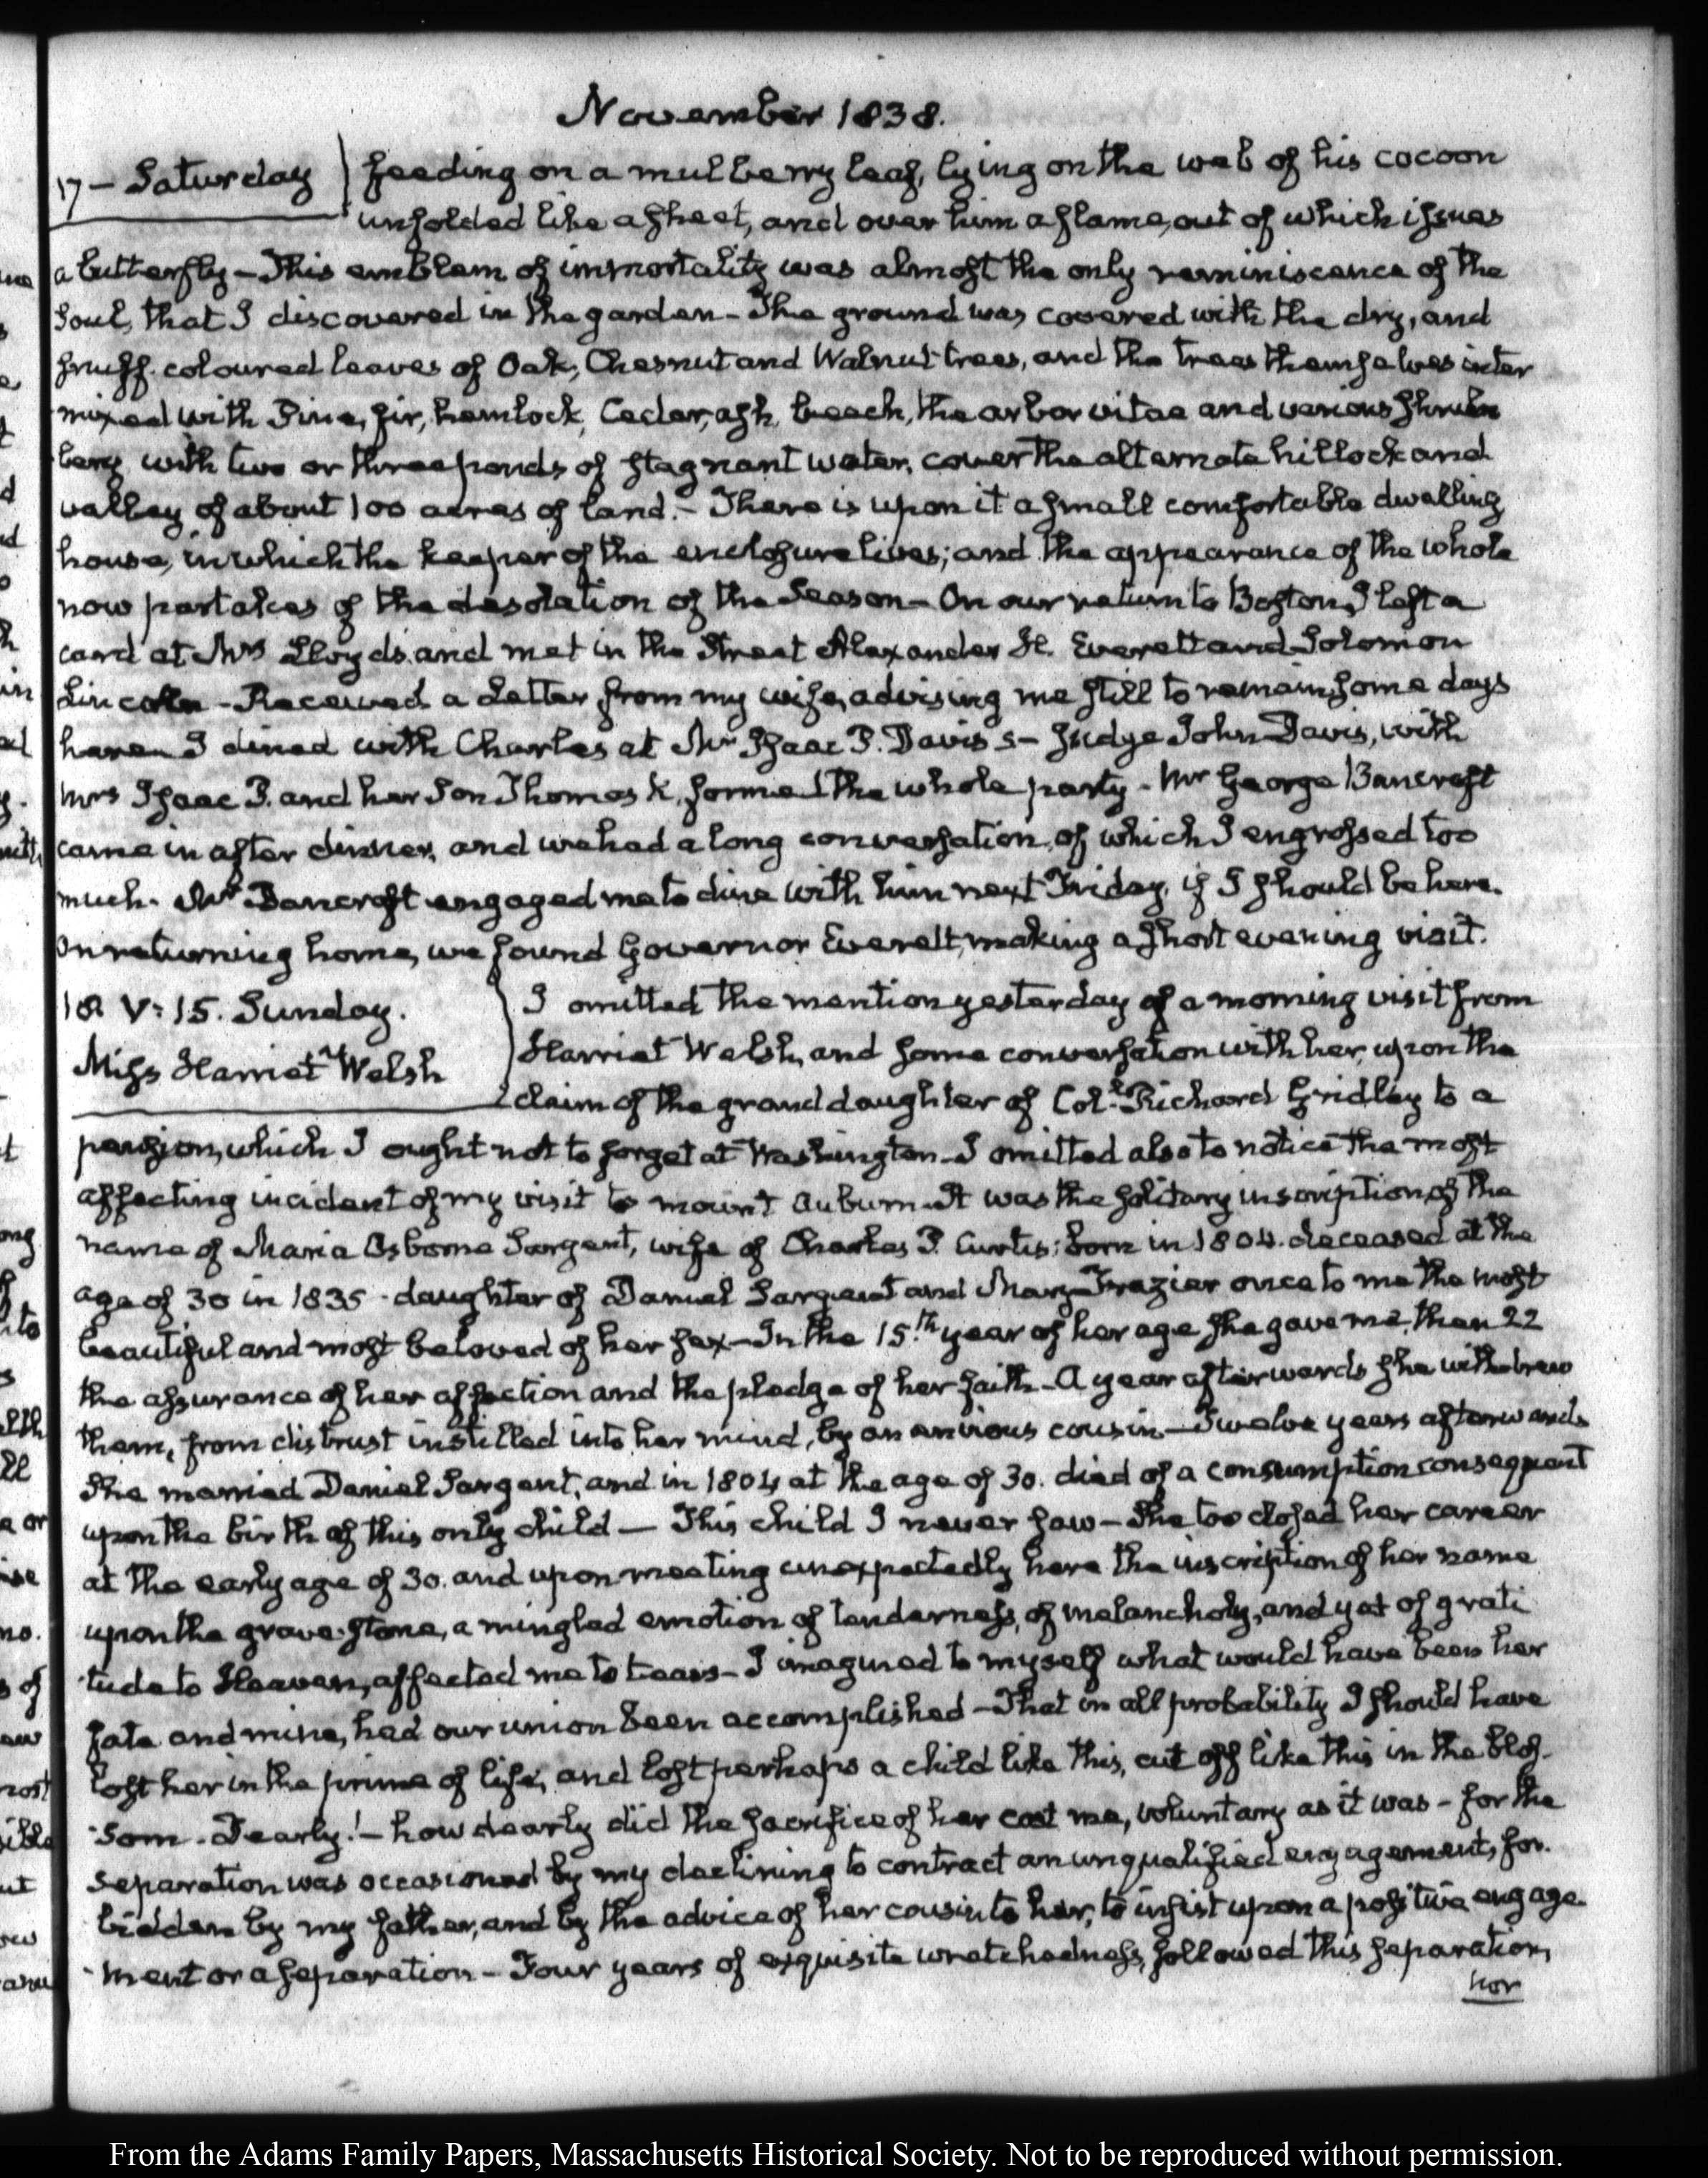 November 1838.
17 – Saturday
feeding on a mulberry leaf, lying on the web of his cocoon
unfolded like a sheet, and over him a flame, out of which issues
a butterfly – This emblem of immortality was almost the only reminiscence of the
Soul, that I discovered in the garden – The ground was covered with the dry, and
snuff-coloured leaves of Oak, Chesnut and Walnut trees, and the trees themselves inter
mixed with Pine, fir, hemlock, Cedar, ash, beech, the arbor vitae and various shrub
bery with two or three ponds of stagnant water, cover the alternate hillock and
valley of about 100 acres of land. – There is upon it a small comfortable dwelling
house, in which the keeper of the enclosure lives; and the appearance of the whole
now partakes of the desolation of the Season – On our return to Boston, I left a
card at Mrs Lloyd's and met in the Street Alexander H. Everett and Solomon
Lincoln – Received a Letter from my wife, advising me still to remain some days
here – I dined with Charles at Mr Isaac P. Davis's – Judge John Davis, with
Mrs Isaac P. and her Son Thomas K. formed the whole party – Mr George Bancroft
came in after dinner, and we had a long conversation, of which I engrossed too
much. Mr Bancroft engaged me to dine with him next Friday, if I should be here.
On returning home, we found Governor Everett, making a short evening visit.
18 V: 15. Sunday.
Miss Harriet Welsh
I omitted the mention yesterday of a morning visit from
Harriet Welsh, and some conversation with her, upon the
claim of the grand daughter of Coll. Richard Gridley to a
pension, which I ought not to forget at Washington – I omitted also to notice the most
affecting incident of my visit to mount Auburn – It was the solitary inscription of the
name of Maria Osborne Sargent, wife of Charles P. Curtis; born in 1804. deceased at the
age of 30 in 1835 – daughter of Daniel Sargent and Mary Frazier once to me the most
beautiful and most beloved of her sex – In the 15th year of her age she gave me, then 22
the assurance of her affection and the pledge of her faith – A year afterwards she withdrew
them, from distrust instilled into her mind, by an envious cousin – Twelve years afterwards
she married Daniel Sargent, and in 1804 at the age of 30. died of a consumption consequent
upon the birth of this only child – This child I never saw – She too closed her career
at the early age of 30. and upon meeting unexpectedly here the inscription of her name
upon the grave-stone, a mingled emotion of tenderness, of melancholy, and yet of grati
tude to Heaven, affected me to tears – I imagined to myself what would have been her
fate and mine, had our union been accomplished – That in all probability I should have
lost her in the prime of life, and lost perhaps a child like this, cut off like this in the blos-
som. Dearly! – how dearly did the sacrifice of her cost me, voluntary as it was – for the
separation was occasioned by my declining to contract an unqualified engagement, for-
bidden by my father, and by the advice of her cousin to her, to insist upon a positive engage
ment or a separation – Four years of exquisite wretchedness, followed this separation,
nor
From the Adams Family Papers, Massachusetts Historical Society. Not to be reproduced without permission.